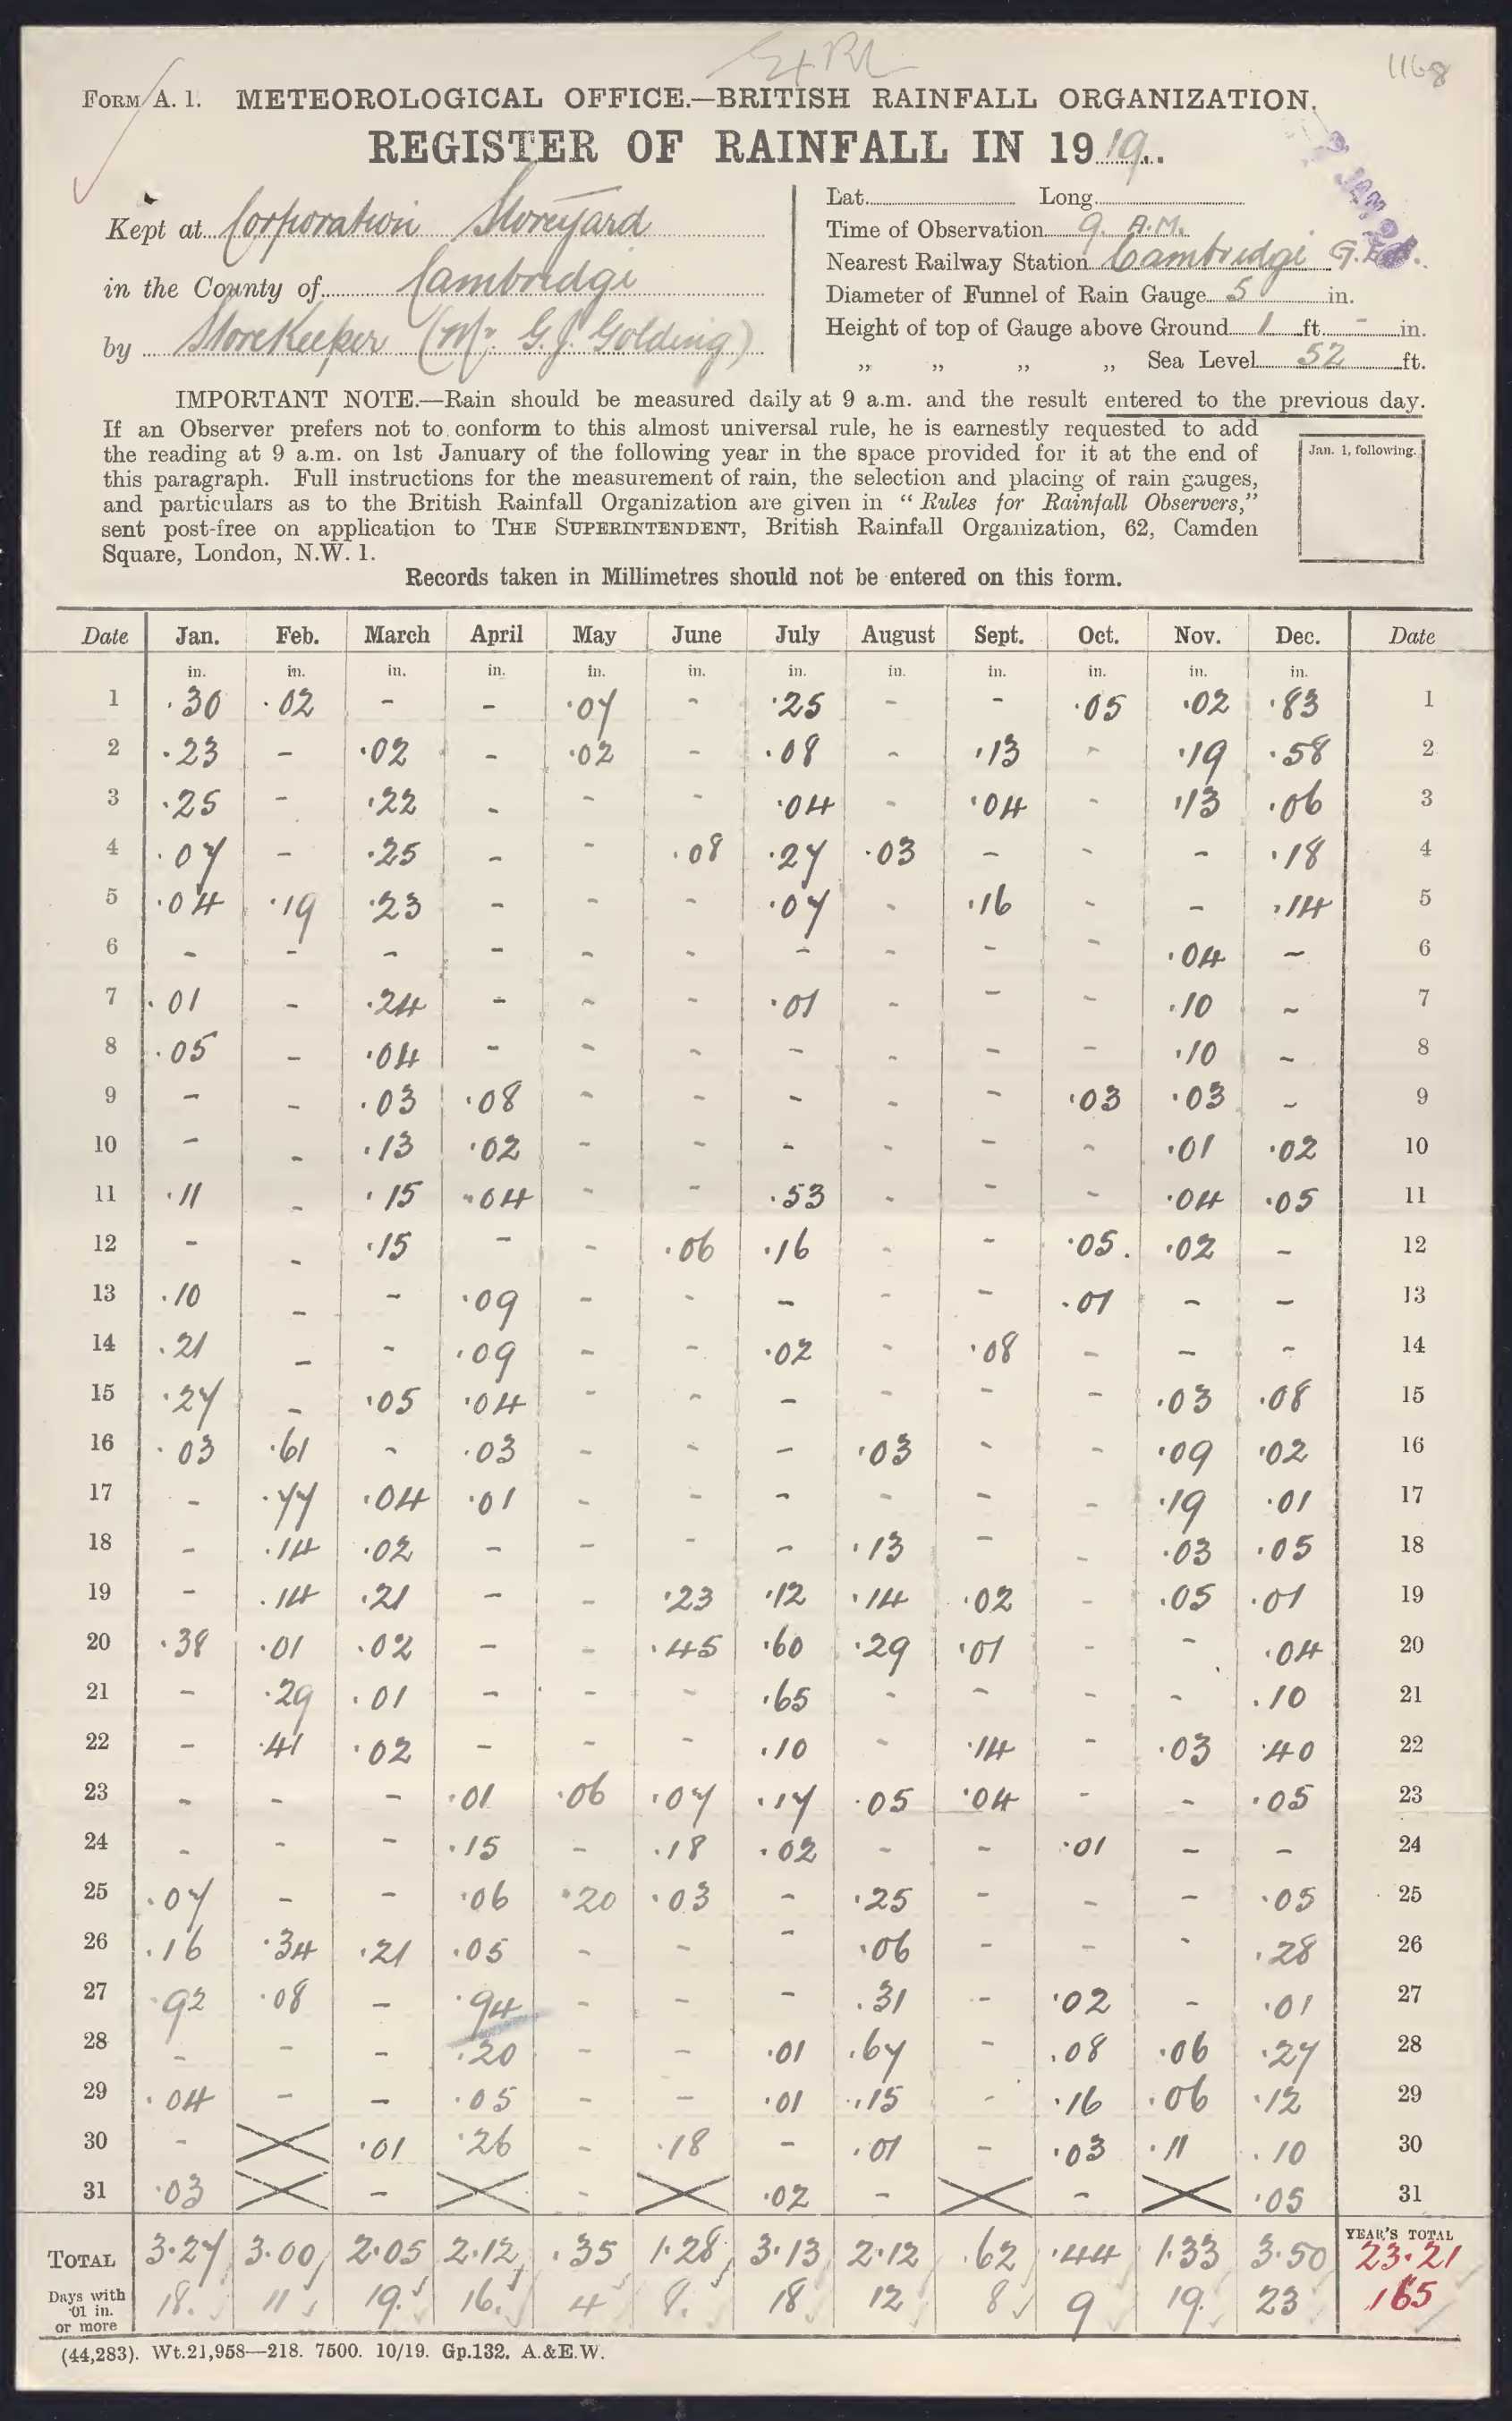 Ex Rd
1168
FORM A. 1. METEOROLOGICAL OFFICE.—BRITISH RAINFALL ORGANIZATION.
REGISTER OF RAINFALL IN 1919.
Kept at Corporation Storeyard
in the County of Cambridge
by Storekeeper (Mr. G. J. Golding)
Lat. Long.
Time of Observation 9. A.M.
Nearest Railway Station Cambridge G.E.R.
Diameter of Funnel of Rain Gauge 5 in.
Height of top of Gauge above Ground 1 ft. - in.
„ „ „ „ Sea Level 52 ft.
IMPORTANT NOTE.—Rain should be measured daily at 9 a.m. and the result entered to the previous day.
If an Observer prefers not to conform to this almost universal rule, he is earnestly requested to add
the reading at 9 a.m. on 1st January of the following year in the space provided for it at the end of
this paragraph. Full instructions for the measurement of rain, the selection and placing of rain gauges,
and particulars as to the British Rainfall Organization are given in “Rules for Rainfall Observers,”
sent post-free on application to THE SUPERINTENDENT, British Rainfall Organization, 62, Camden
Square, London, N.W. 1.
Jan. 1, following.
Records taken in Millimetres should not be entered on this form.
Date Jan. Feb. March April May June July August Sept. Oct. Nov. Dec. Date
in. in. in. in. in. in. in. in. in. in. in. in.
1 .30 .02 - - .07 - .25 - - .05 .02 .83 1
2 .23 - .02 - .02 - .08 - .13 - .19 .58 2
3 .25 - .22 - - - .04 - .04 - .13 .06 3
4 .07 - .25 - - .08 .27 .03 - - - .18 4
5 .04 .19 .23 - - - .07 - .16 - - .14 5
6 - - - - - - - - - - .04 - 6
7 .01 - .24 - - - .01 - - - .10 - 7
8 .05 - .04 - - - - - - - .10 - 8
9 - - .03 .08 - - - - - .03 .03 - 9
10 - - .13 .02 - - - - - - .01 .02 10
11 .11 - .15 .04 - - .53 - - - .04 .05 11
12 - - .15 - - .06 .16 - - .05. .02 - 12
13 .10 - - .09 - - - - - .01 - - 13
14 .21 - - .09 - - .02 - .08 - - - 14
15 .27 - .05 .04 - - - - - - .03 .08 15
16 .03 .61 - .03 - - - .03 - - .09 .02 16
17 - .77 .04 .01 - - - - - - .19 .01 17
18 - .14 .02 - - - - .13 - - .03 .05 18
19 - .14 .21 - - .23 .12 .14 .02 - .05 .01 19
20 .38 .01 .02 - - .45 .60 .29 .01 - - .04 20
21 - .29 .01 - - - .65 - - - - .10 21
22 - .41 .02 - - - .10 - .14 - .03 .40 22
23 - - - .01 .06 .07 .17 .05 .04 - - .05 23
24 - - - .15 - .18 .02 - - .01 - - 24
25 .07 - - .06 .20 .03 - .25 - - - .05 25
26 .16 .34 .21 .05 - - - .06 - - - .28 26
27 .92 .08 - .94 - - - .31 - .02 - .01 27
28 - - - .20 - - .01 .67 - .08 .06 .27 28
29 .04 - - .05 - - .01 .15 - .16 .06 .12 29
30 - .01 .26 - .18 - .01 - .03 .11 .10 30
31 .03 - - .02 - - .05 31
YEAR'S TOTAL
TOTAL 3.27 3.00 2.05 2.12 .35 1.28 3.13 2.12 .62 .44 1.33 3.50 23.21
Days with
.01 in.
or more 18. 11 19. 16. 4 8. 18 12 8 9 19. 23 165
(44,283). Wt.21,958—218. 7500. 10/19. Gp.132. A.&E.W.